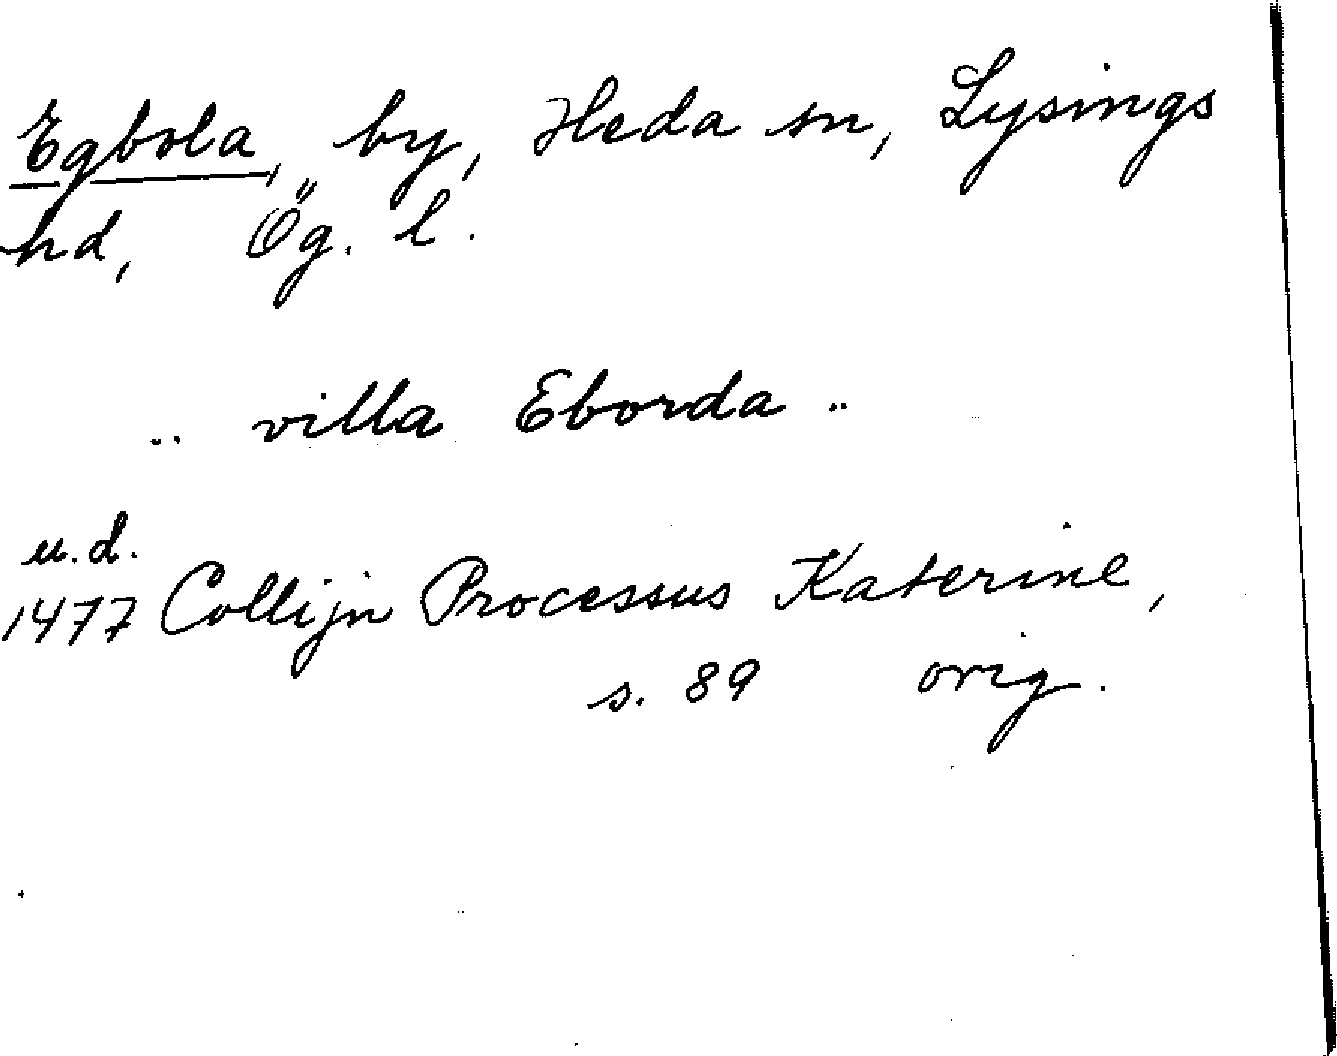 Egbola, by, Heda sn, Lysings
hd, Ög. l.
.. villa Eborda ..
u.d.
1477 Collijn Processus Katerine,
s. 89 orig.